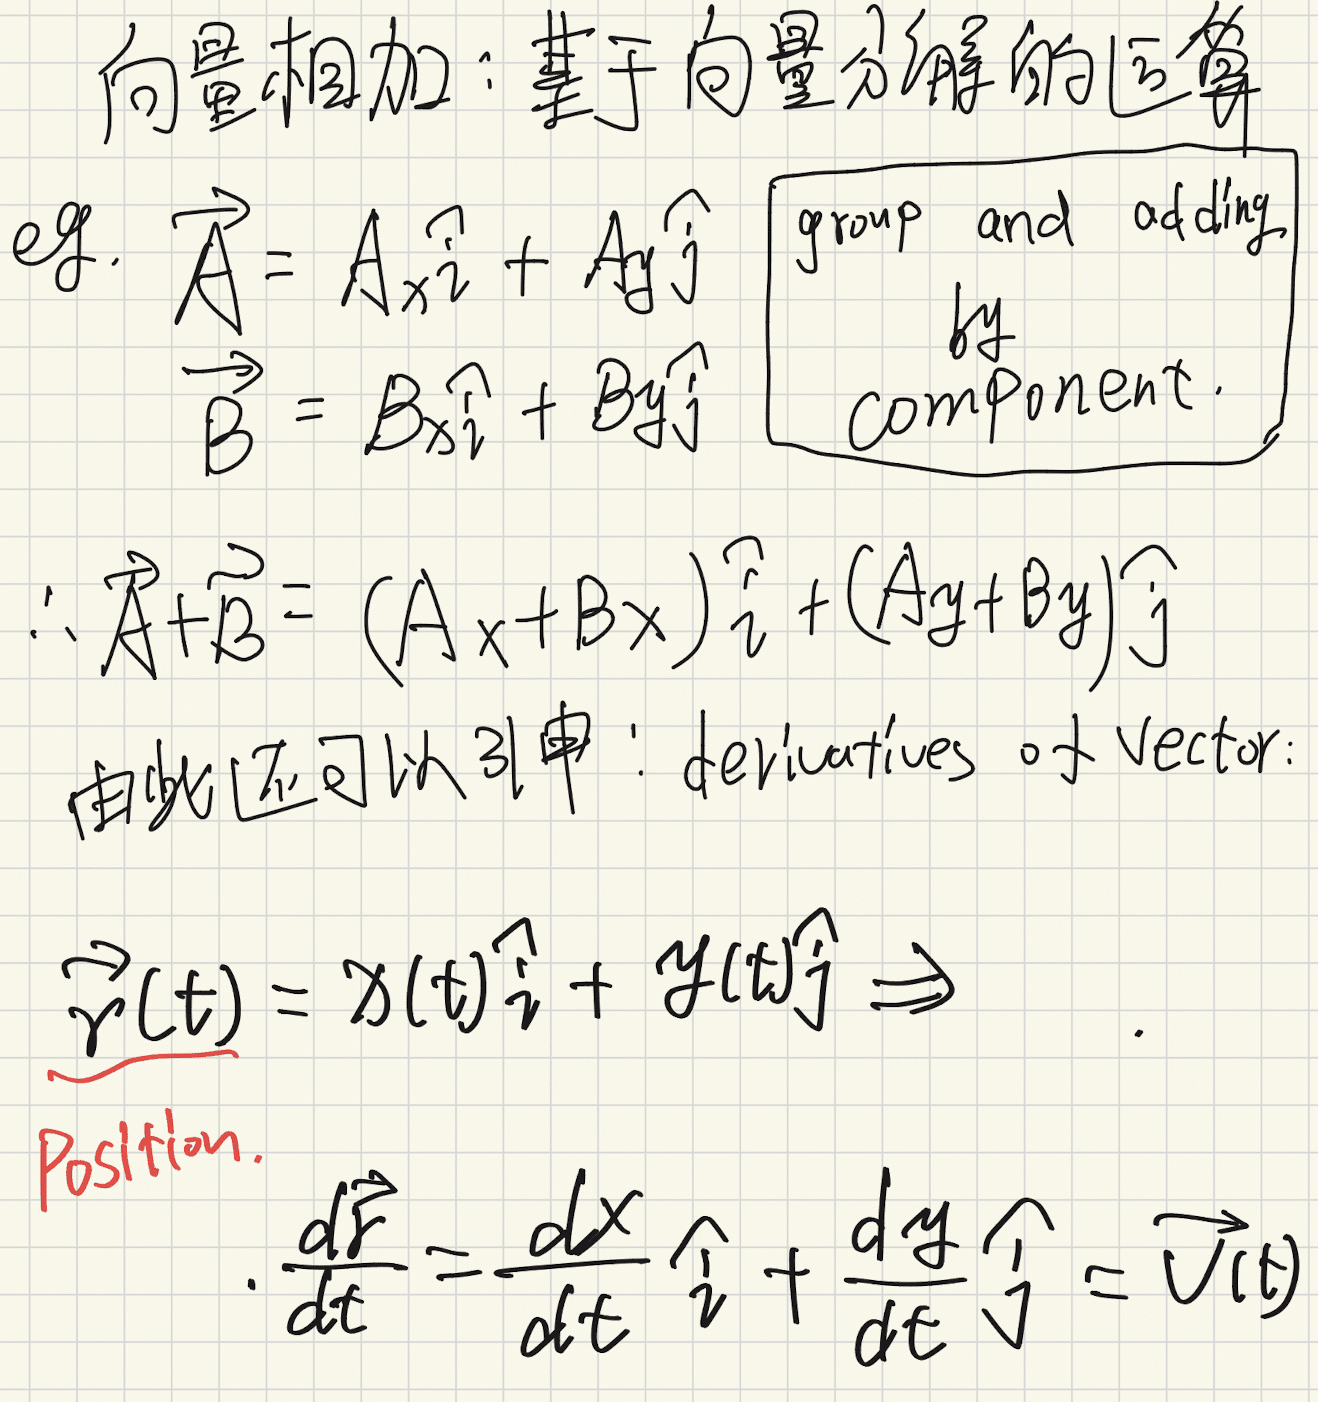 向量相加：基于向量分解的运算
eg. $\vec{A} = A_x\hat{i} + A_y\hat{j}$
group and adding
by
component.
$\vec{B} = B_x\hat{i} + B_y\hat{j}$
$\therefore \vec{A}+\vec{B} = (A_x+B_x)\hat{i} + (A_y+B_y)\hat{j}$
由此还可以引申：derivatives of vector:
$\vec{r}(t) = x(t)\hat{i} + y(t)\hat{j} \Rightarrow$
Position.
$\frac{d\vec{r}}{dt} = \frac{dx}{dt}\hat{i} + \frac{dy}{dt}\hat{j} = \vec{v}(t)$